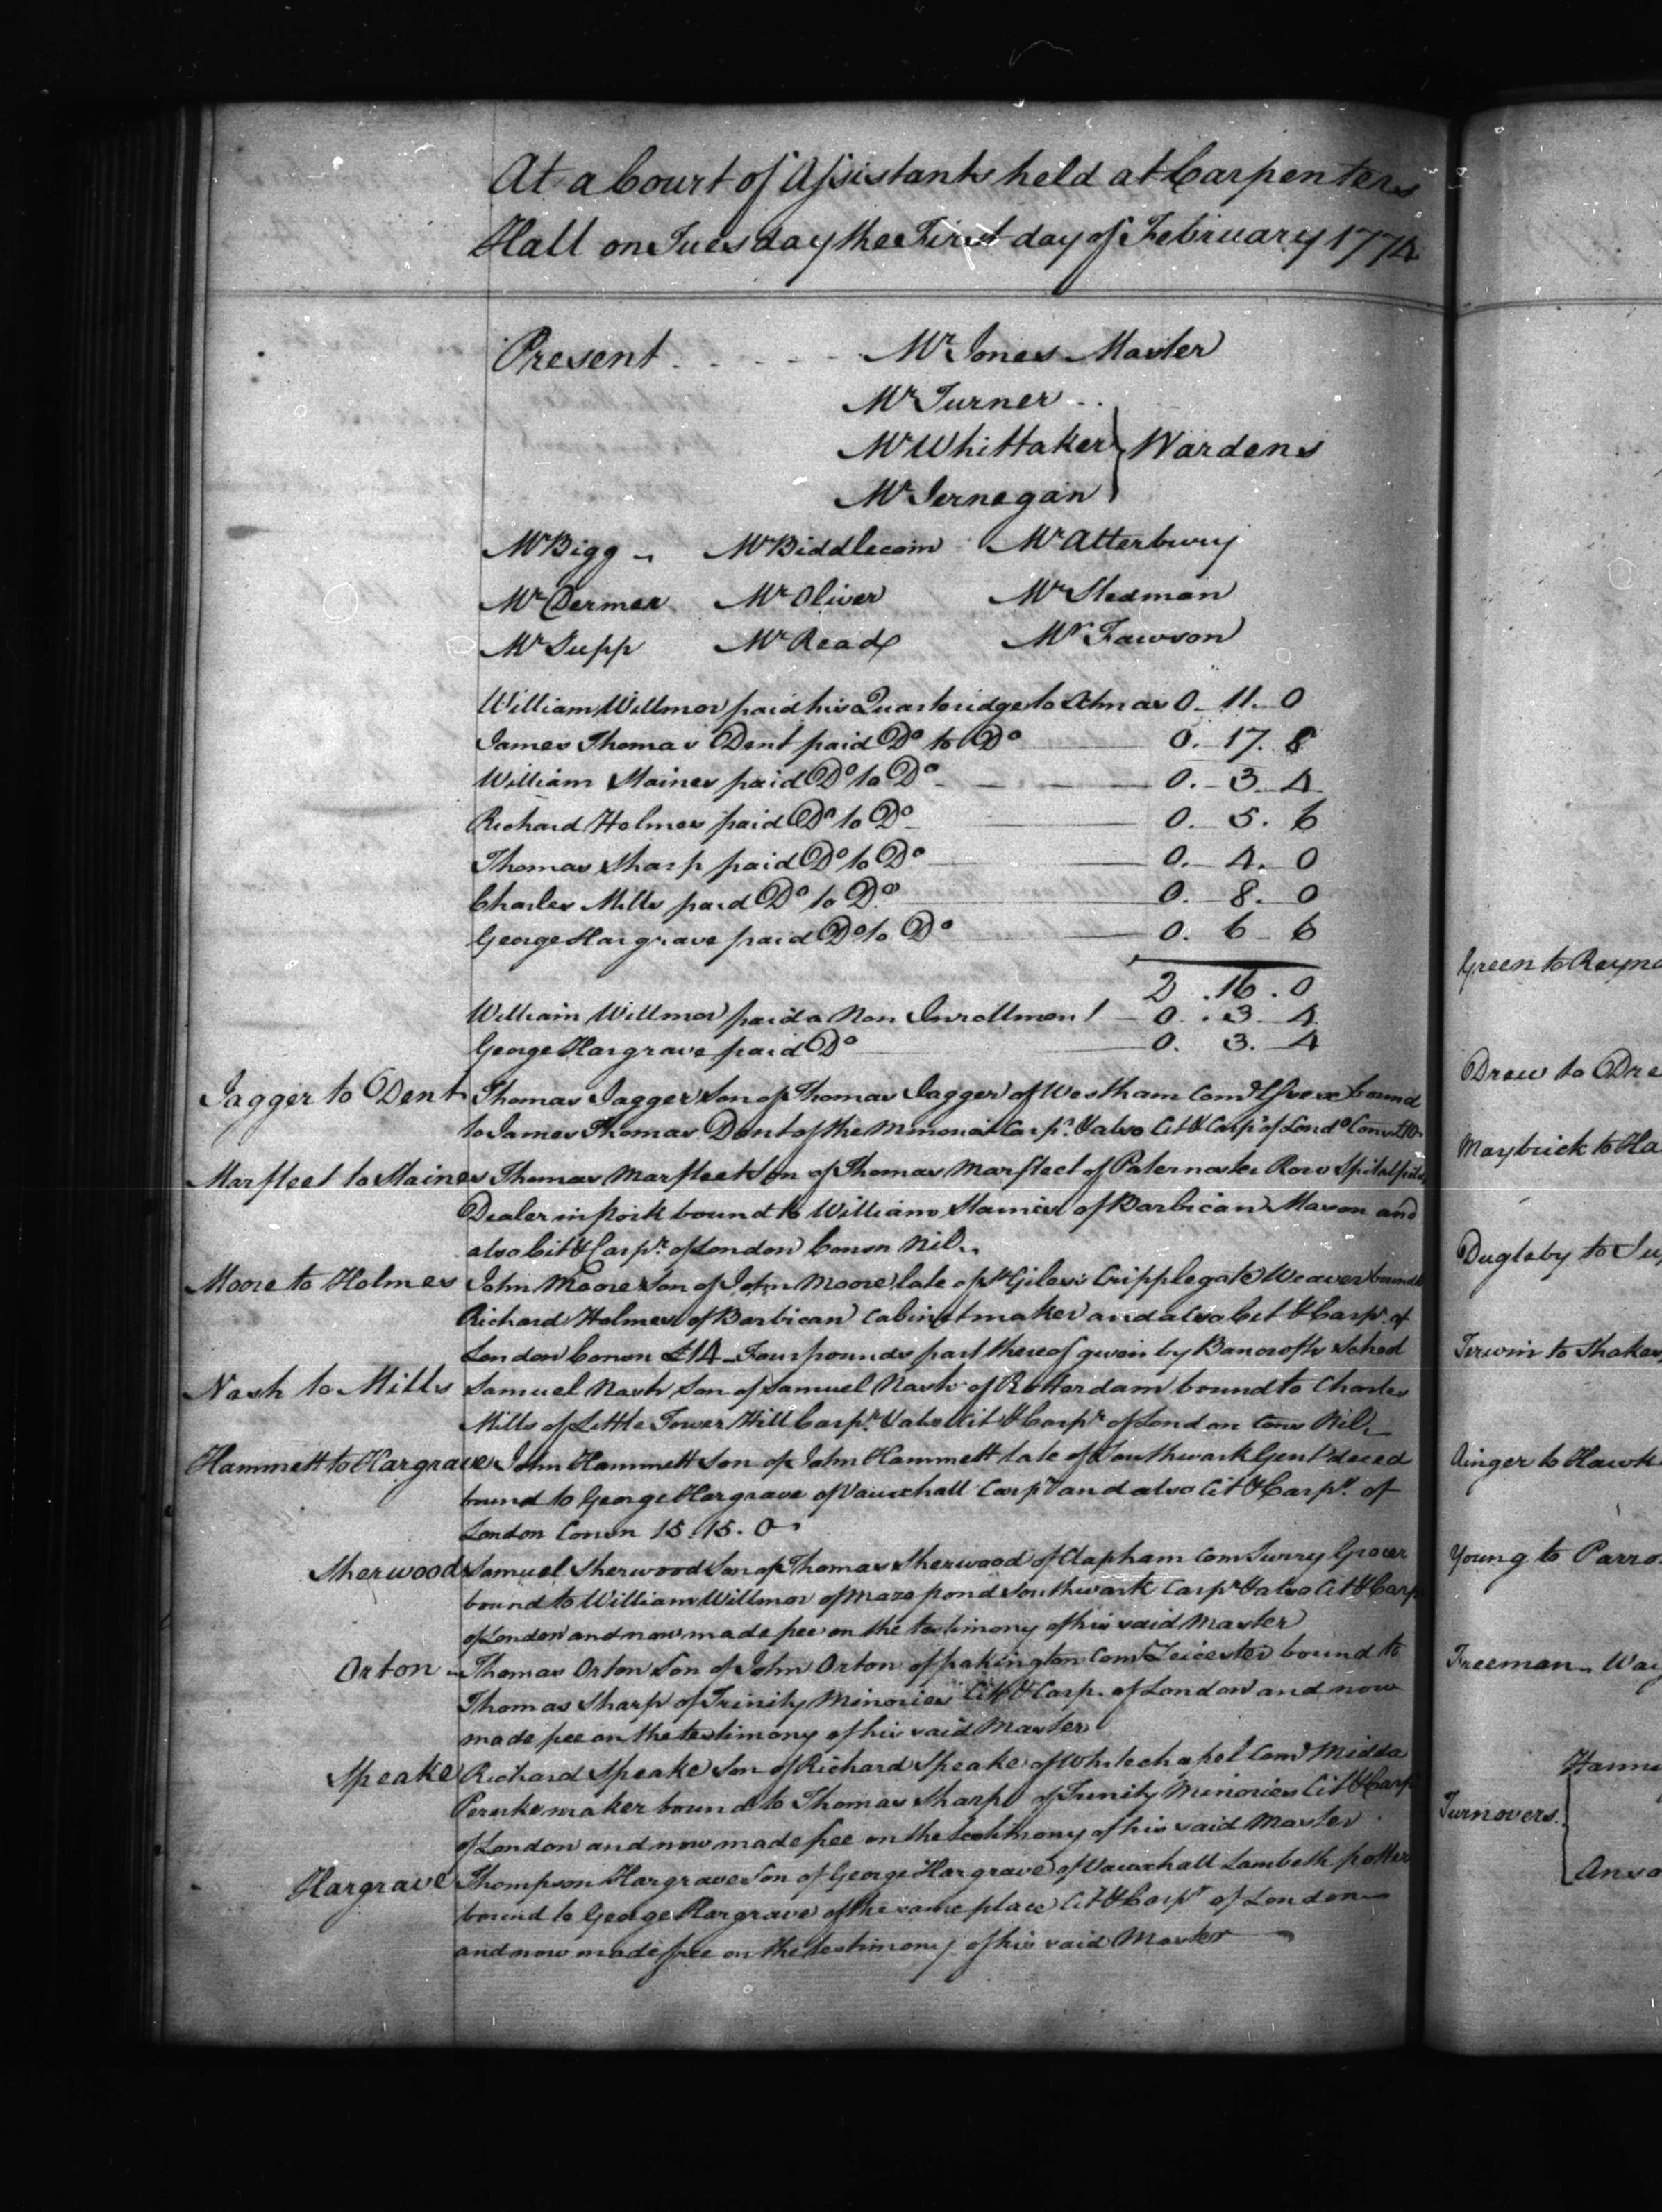 At a Court of Assistants held at Carpenters
Hall on Tuesday the First day of February 1774
Present - - - - Mr Jones Master
Mr Turner - -
Mr Whittaker } Wardens
Mr Jernegan
Mr Bigg - Mr Biddlecom Mr Atterbury
Mr Dermer Mr Oliver Mr Stedman
Mr Supp Mr Read Mr Fawson
William Willmor paid his Quarteridge to Xtmas 0. 11. 0
James Thomas Dent paid Do to Do 0. 17. 8
William Staines paid Do to Do 0. 3. 4
Richard Holmes paid Do to Do 0. 5. 6
Thomas Sharp paid Do to Do 0. 4. 0
Charles Mills paid Do to Do 0. 8. 0
George Hargrave paid Do to Do 0. 6. 6
2. 16. 0
William Willmor paid a Non Inrollment 0. 3. 4
George Hargrave paid Do 0. 3. 4
Jagger to Dent Thomas Jagger Son of Thomas Jagger of Westham Com Essex bound
to James Thomas Dent of the Minories Carpr & also Cit & Carpr of Londo Cons £10
Marfleet to Staines Thomas Marfleet Son of Thomas Marfleet of Paternoster Row Spitalfields
Dealer in pork bound to William Staines of Barbican Mason and
also Cit & Carpr of London Conson Nil
Moore to Holmes John Moore Son of John Moore late of St Giles's Cripplegate Weaver bound to
Richard Holmes of Barbican Cabinetmaker and also Cit & Carpr of
London Conson £14 - Four pounds part thereof given by Bancrofts School
Nash to Mills Samuel Nash Son of Samuel Nash of Rotterdam bound to Charles
Mills of Little Tower Hill Carpr & also Cit & Carpr of London Cons Nil
Hammett to Hargrave John Hammett Son of John Hammett late of Southwark Gent deced
bound to George Hargrave of Vauxhall Carpr and also Cit & Carpr of
London Conson 15. 15. 0
Sherwood Samuel Sherwood Son of Thomas Sherwood of Clapham Com Surry Grocer
bound to William Willmor of Maze pond Southwark Carpr & also Cit & Carpr
of London and now made free on the testimony of his said Master
Orton - Thomas Orton Son of John Orton of pakington Com Leicester bound to
Thomas Sharp of Trinity Minories Cit & Carp. of London and now
made free on the testimony of his said Master
Speake Richard Speake Son of Richard Speake of Whitechapel Com Middx
Perukemaker bound to Thomas Sharp of Trinity Minories Cit & Carpr
of London and now made free on the testimony of his said Master
Hargrave Thompson Hargrave Son of George Hargrave of Vauxhall Lambeth potter
bound to George Hargrave of the same place Cit & Carpr of London
and now made free on the testimony of his said Master
Green to Reyno
Drew to Dre
Maybrick to Ha
Dugleby to Su
Terwin to Shakes
Ainger to Hawk
Young to Parro
Freeman - Way
Turnovers { Hanne
Anso